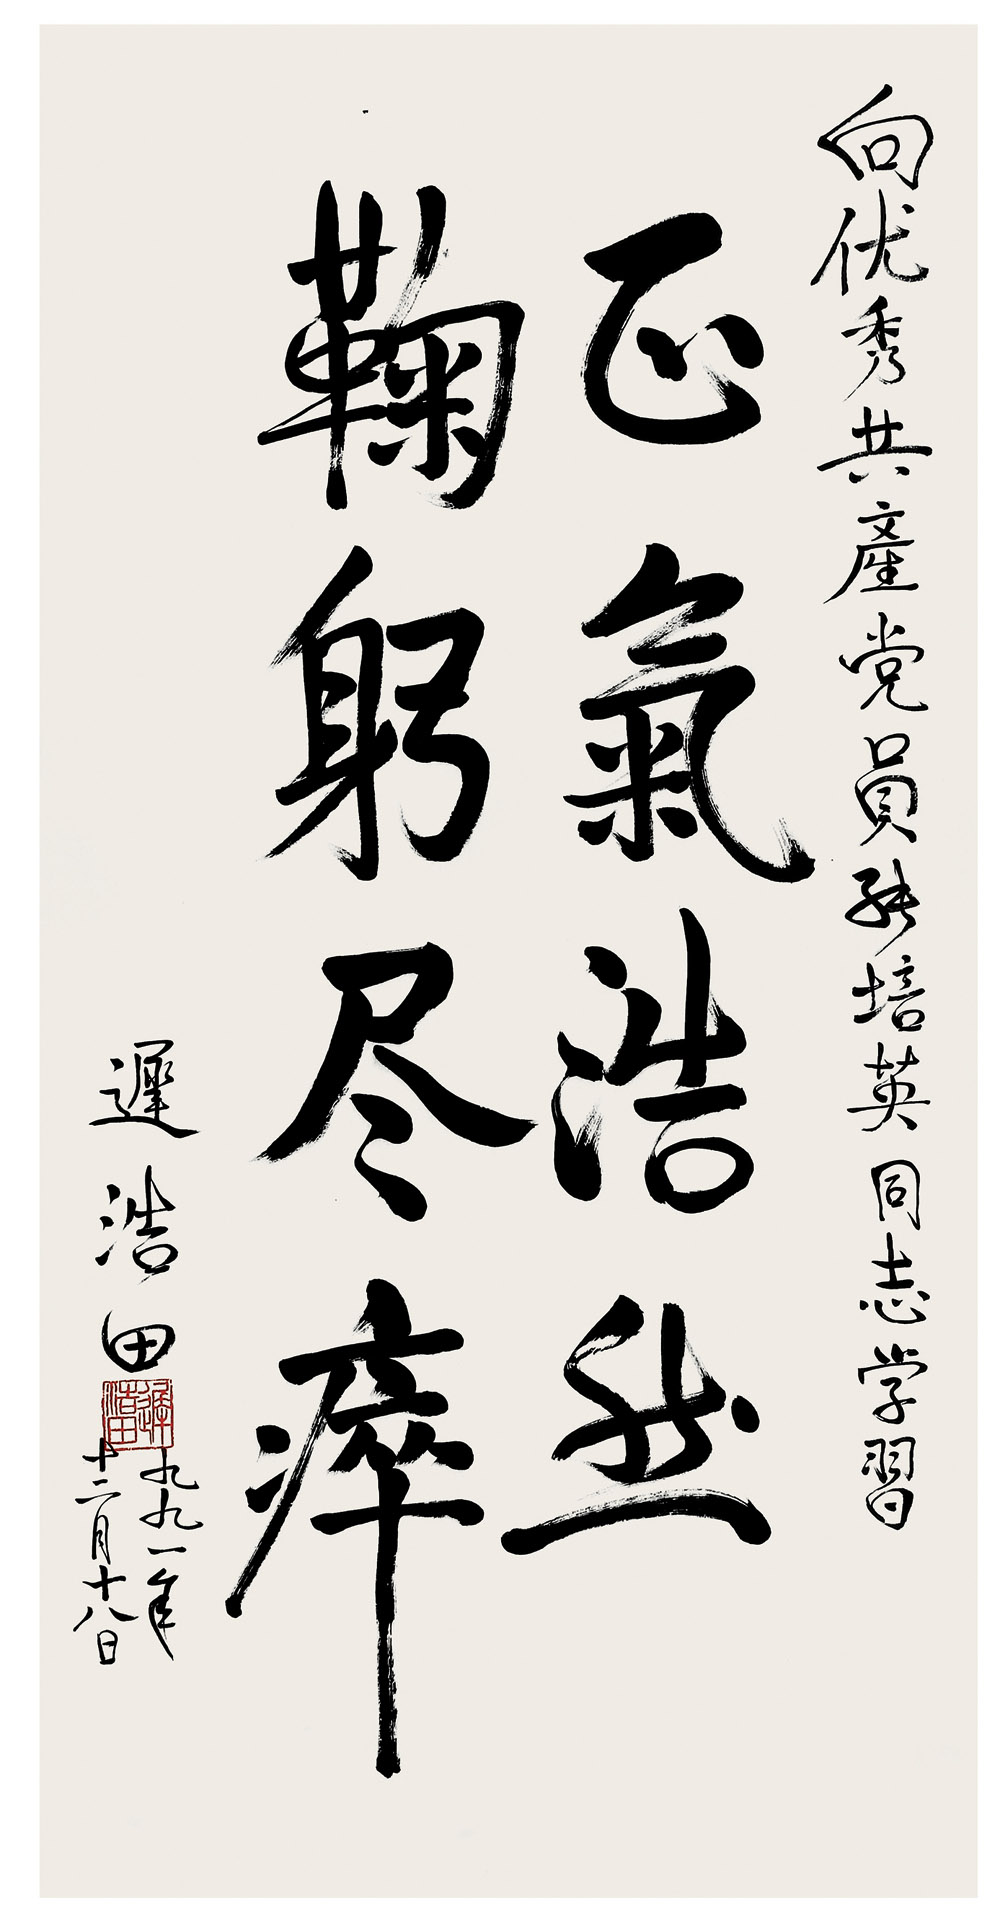 向优秀共產党員张培英同志学習
正氣浩然
鞠躬尽瘁
遲浩田
遲浩田
一九九一年
十二月十八日